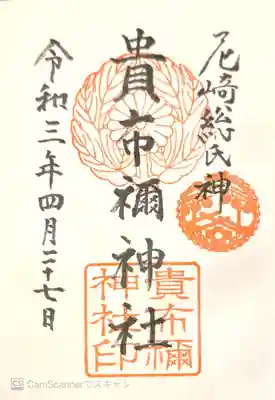 尼崎総氏神
貴布禰神社
令和三年四月二十七日
貴布禰
神社印
CS CamScannerでスキャン